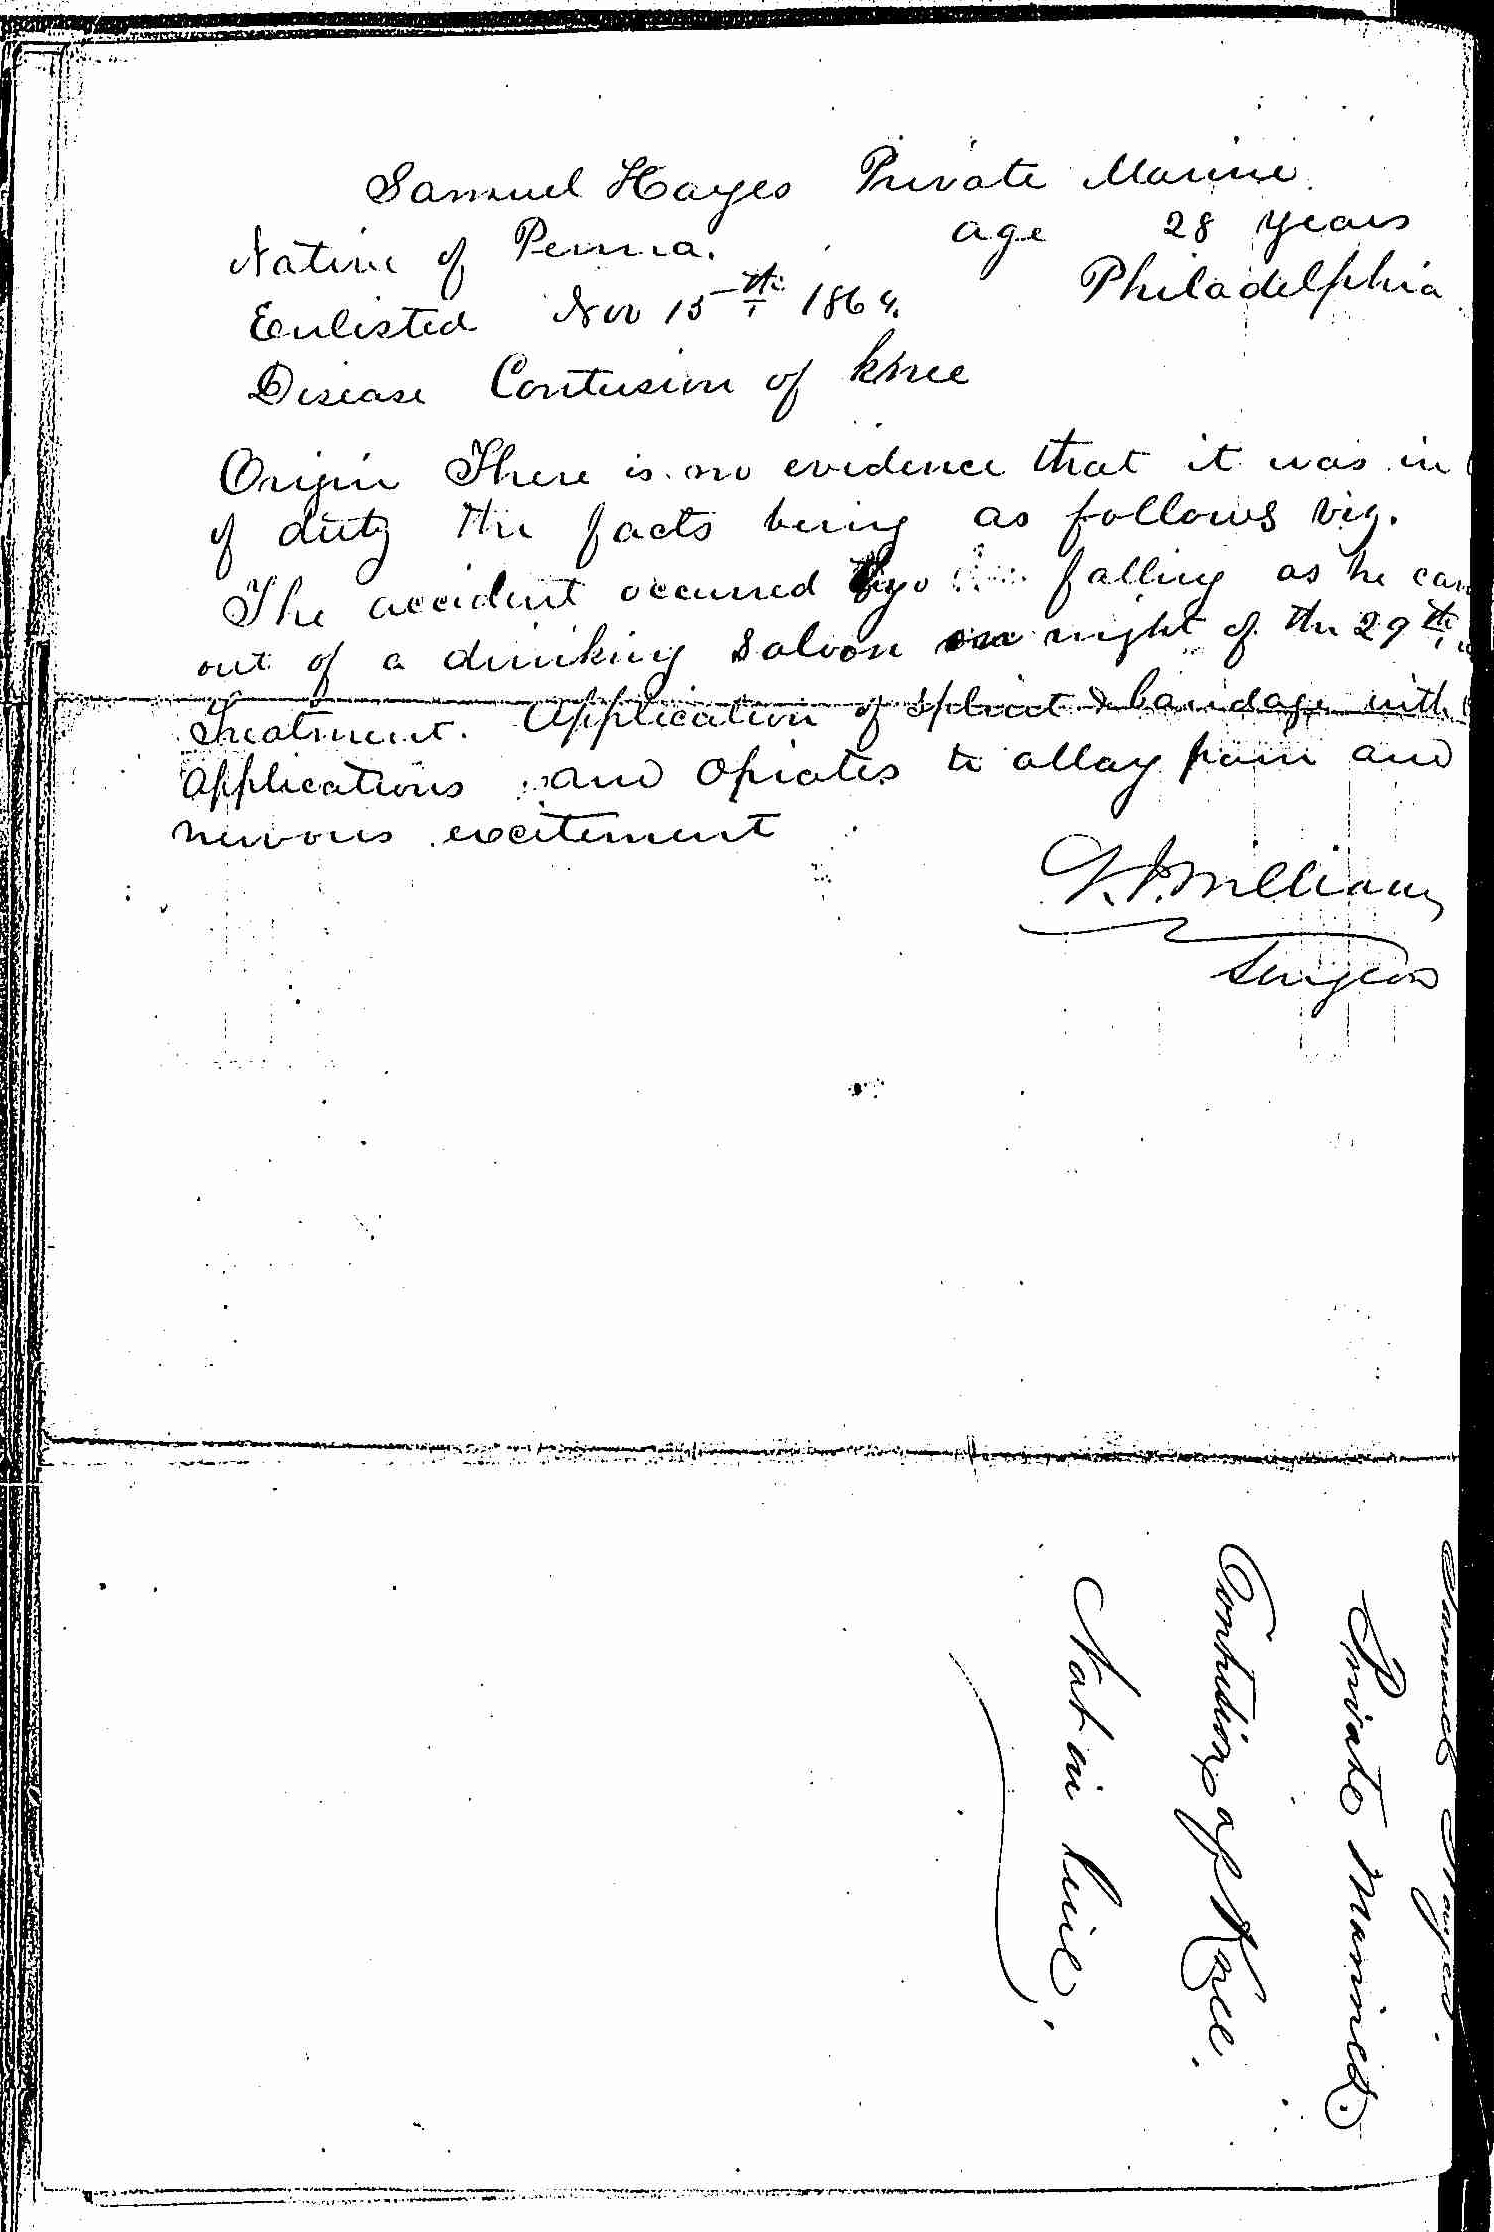 Samuel Hayes Private Marine.
Native of Penna. age 28 years
Enlisted Nov 15th 1864. Philadelphia
Disease Contusion of knee
Origin There is no evidence that it was in
of duty the facts being as follows viz.
The accident occurred by falling as he
out of a drinking saloon on night of the 29th
Treatment. Application of splint & bandage with
applications and opiates to allay pain and
nervous excitement
Williams
Surgeon
Samuel Hayes.
Private Marines.
Contusion of Knee.
Not in line.